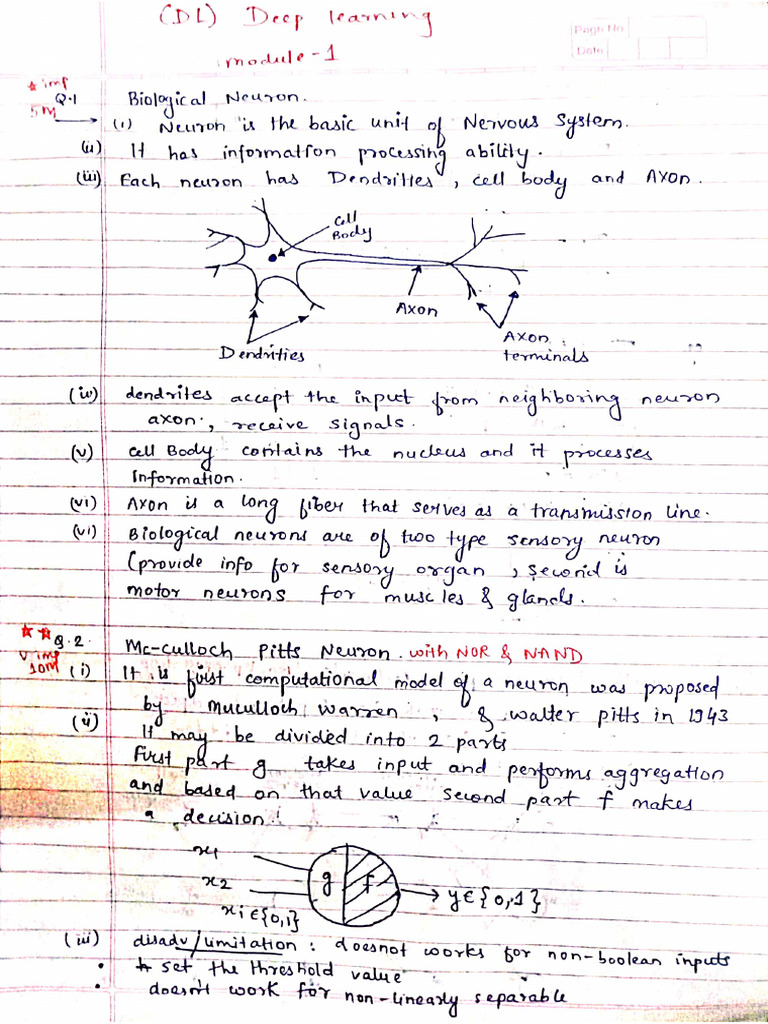 (DL) Deep learning
Page No
Date
module-1
★ imp
Q.1 Biological Neuron.
5M
(i) Neuron is the basic unit of Nervous System.
(ii) It has information processing ability.
(iii) Each neuron has Dendrities, cell body and Axon.
Cell
Body
Axon
Axon
terminals
Dendrities
(iv) dendrites accept the input from neighboring neuron
axon, receive signals.
(v) cell Body contains the nucleus and it processes
Information.
(vi) Axon is a long fiber that serves as a transmission line.
(vi) Biological neurons are of two type sensory neuron
(provide info for sensory organ, second is
motor neurons for muscles & glands.
★★ Q.2. Mc-culloch Pitts Neuron. with NOR & NAND
V imp
10M
(i) It is first computational model of a neuron was proposed
by muculloch warren, & walter pitts in 1943
(ii) It may be divided into 2 parts
First part g takes input and performs aggregation
and based on that value second part f makes
a decision.
x1
x2
xi∈{0,1}
g f
y∈{0,1}
(iii) disadv/limitation: doesnot works for non-boolean inputs
• set the threshold value
• doesn't work for non-linearly separable